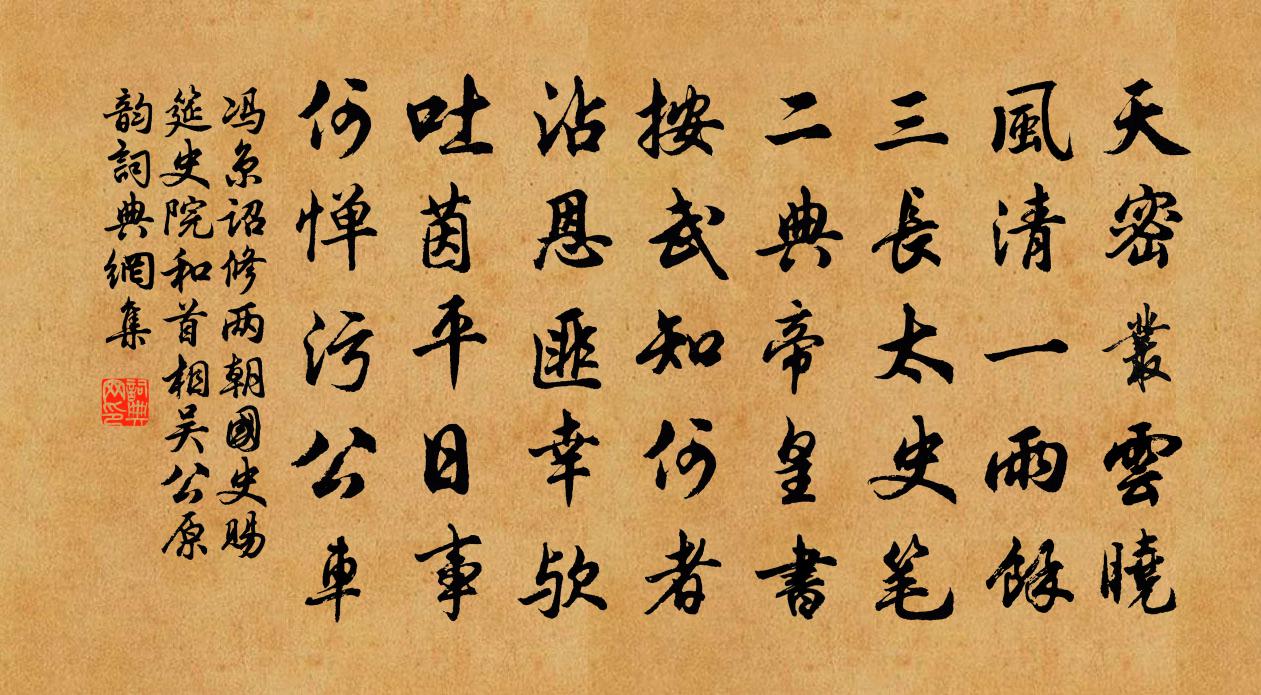 天密叢雲曉
風清一雨餘
三長太史笔
二典帝皇書
接武知何者
沾恩匪幸欤
吐茵平日事
何惮污公車
冯京诏修两朝國史賜
筵史院和首相吴公原
韵詞典網集
詞典網印